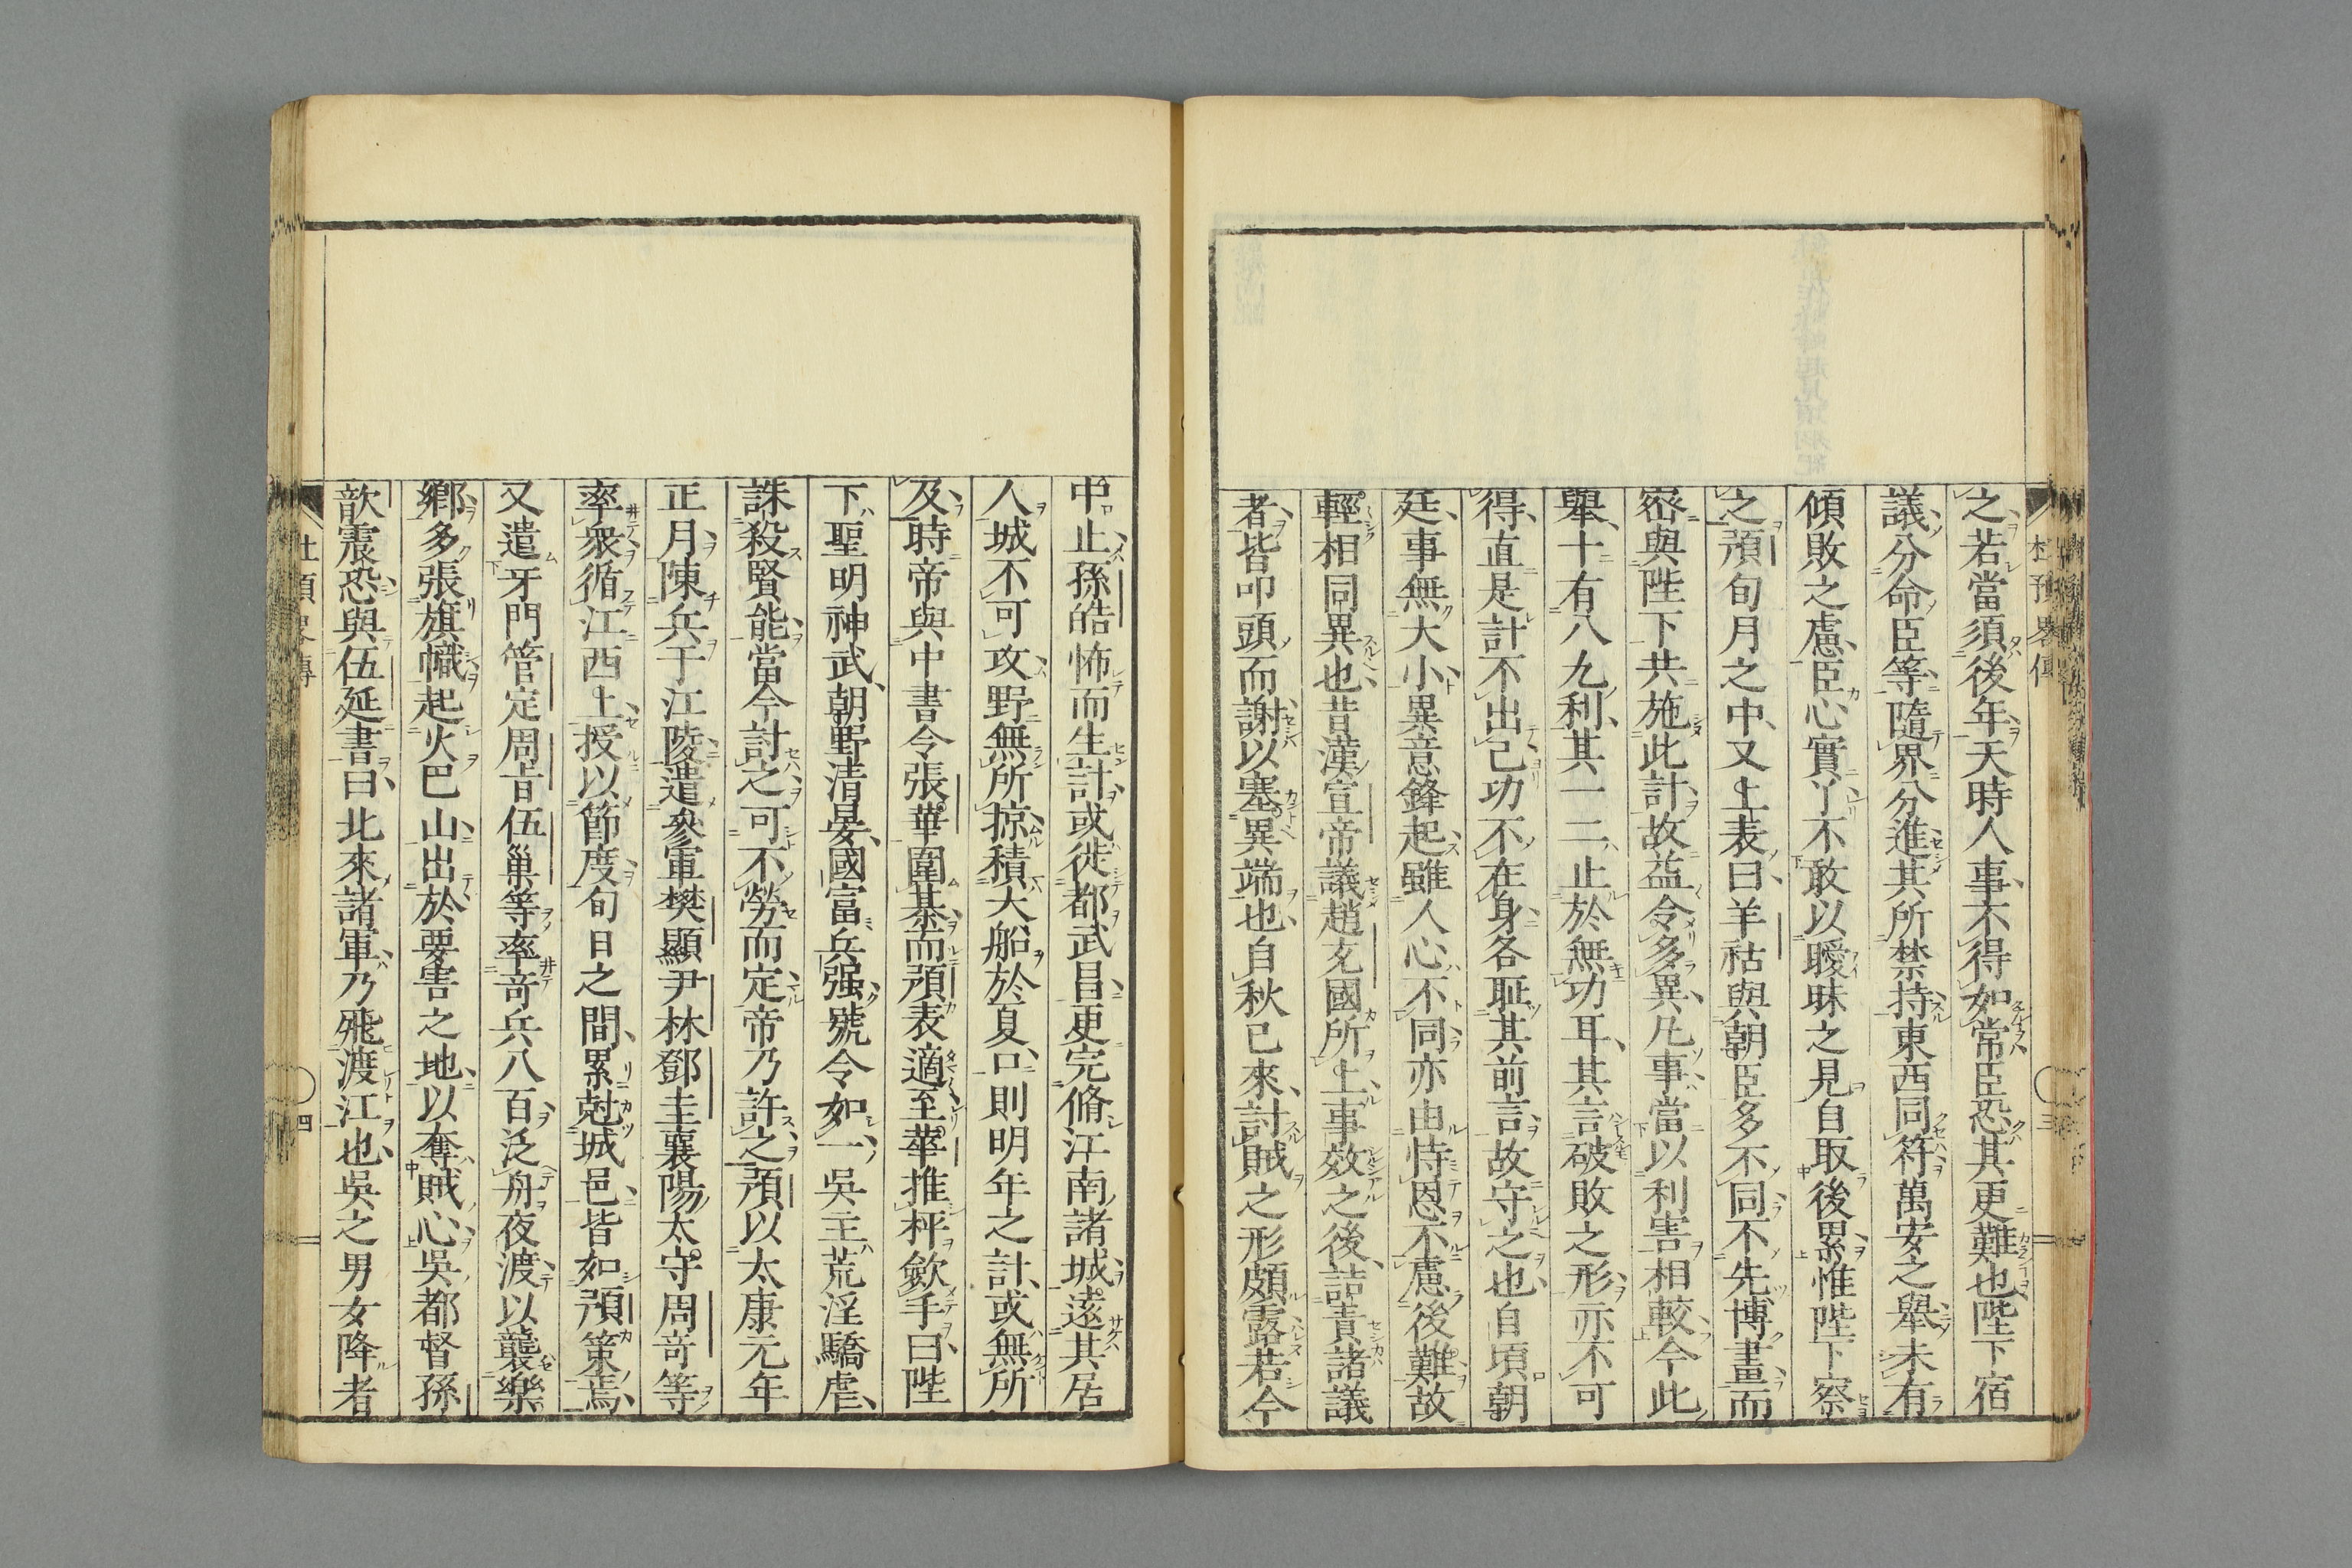 之若當須後年天時人事不得如常臣恐其更難也陛下宿
議分命臣等隨界分進其所禁持東西同符萬安之舉未有
傾敗之慮臣心實了不敢以曖昧之見自取後累惟陛下察
之預旬月之中又上表曰羊祜與朝臣多不同不先博畫而
密與陛下共施此計故益令多異凡事當以利害相較今此
舉十有八九利其一二止於無功耳其言破敗之形亦不可
得直是計不出已功不在身各耻其前言故守之也自頃朝
廷事無大小異意鋒起雖人心不同亦由恃恩不慮後難故
輕相同異也昔漢宣帝議趙充國所上事效之後詰責諸議
者皆叩頭而謝以塞異端也自秋已來討賊之形頗露若今
中止孫皓怖而生計或徙都武昌更完脩江南諸城遠其居
人城不可攻野無所掠積大船於夏口則明年之計或無所
及時帝與中書令張華圍棊而預表適至華推枰斂手曰陛
下聖明神武朝野清晏國富兵强號令如一吳主荒淫驕虐
誅殺賢能當今討之可不勞而定帝乃許之預以太康元年
正月陳兵于江陵遣參軍樊顯尹林鄧圭襄陽太守周奇等
率衆循江西上授以節度旬日之間累尅城邑皆如預策焉
又遣牙門管定周旨伍巢等率奇兵八百泛舟夜渡以襲樂
鄉多張旗幟起火巴山出於要害之地以奪賊心吳都督孫
歆震恐與伍延書曰北來諸軍乃飛渡江也吳之男女降者
杜預畧傳
三
四